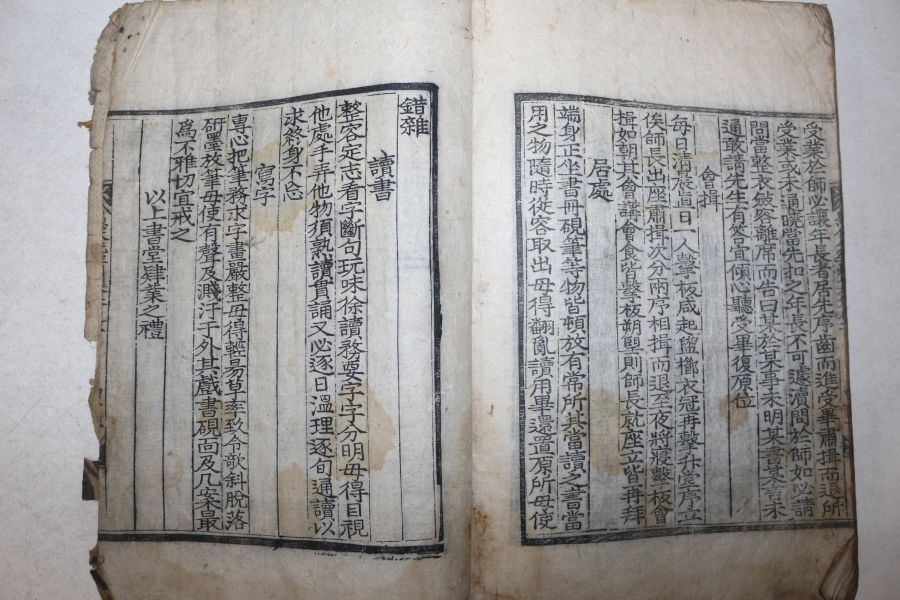 受業於師必讓年長者居先序齒而進受畢肅揖而退所
受業或未通曉當先扣之年長不可遽瀆問於師如必請
問當整衣斂容離席而告曰某於某事未明某書某言未
通敢請先生有答宜傾心聽受畢復原位
會揖
每日清晨直日一人擊板咸起盥櫛衣冠再擊升堂序立
俟師長出座肅揖次分兩序相揖而退至夜將寢擊板會
揖如朝其會講會食皆擊板朔望則師長就座立皆再拜
居處
端身正坐書冊硯筆等物皆頓放有常所其當讀之書當
用之物隨時從容取出毋得翻亂讀用畢還置原所毋使
錯雜
讀書
整容定志看字斷句玩味徐讀務要字字分明毋得目視
他處手弄他物須熟讀貫誦又必逐日溫理逐旬通讀以
求終身不忘
寫字
專心把筆務求字畫嚴整毋得輕易草率致令欹斜脫落
研墨放筆毋使有聲及濺汙于外其戲書硯面及几案最
爲不雅切宜戒之
以上書堂肄業之禮